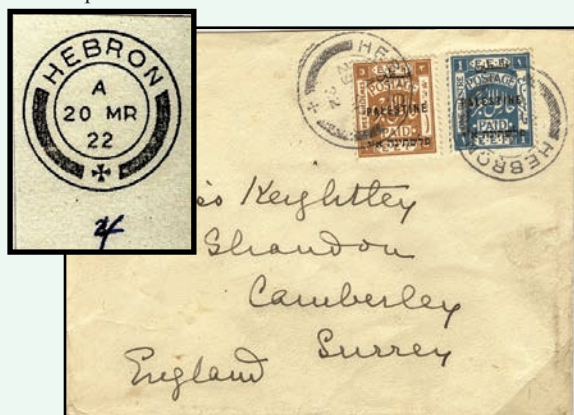 HEBRON
A
20 MR
22
HEBRON
POSTAGE
PALESTINE
PAID
E.E.F.
POSTAGE
PALESTINE
PAID
HEBRON
Keightley
Shandon
Camberley
Surrey
England